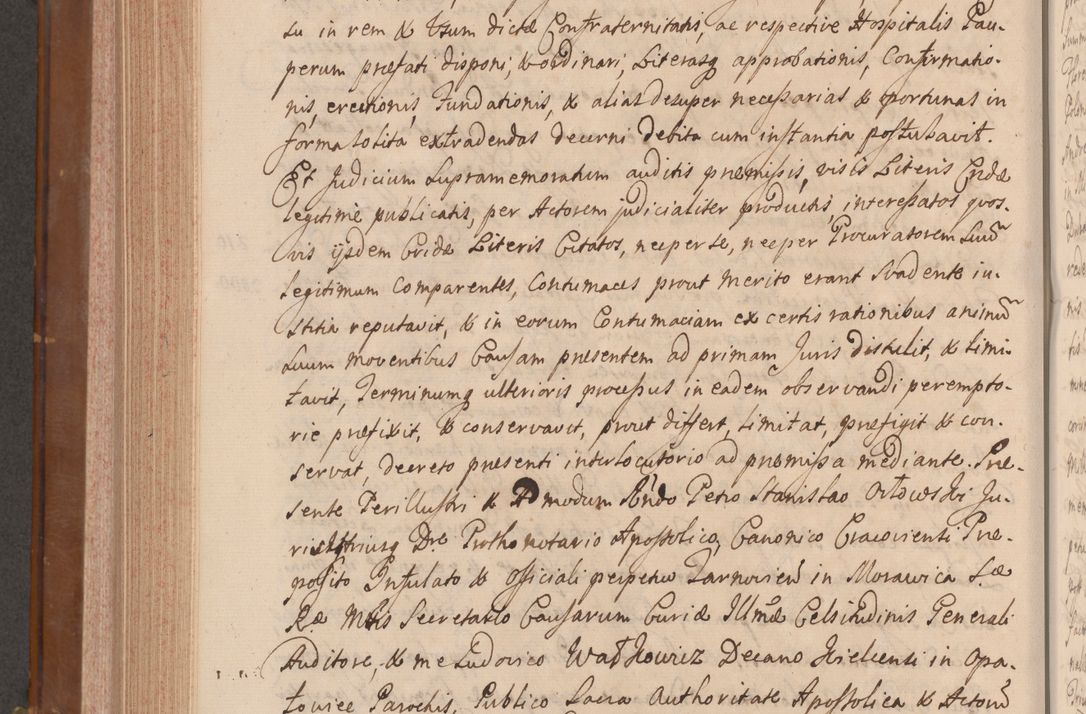 su in rem & Usum dictæ Confraternitatis, ac respective Hospitalis Pau-
perum præfati disponi, & ordinari, Literasq approbationis, Confirmatio-
nis, erectionis, Fundationis, & alias desuper necessarias & oportunas in
forma solita extradendas decerni debita cum instantia postulavit.
Et Judicium supramemoratum auditis præmissis, visis Literis Cridæ
legitime publicatis, per Actorem judicialiter productis, interessatos quos-
vis ijsdem Cridæ Literis Citatos, nec per se, nec per Procuratorem suum
legitimum Comparentes, Contumaces prout merito erant svadente iu-
stitia reputavit, & in eorum Contumaciam ex certis rationibus animum
suum moventibus Causam præsentem ad primam Juris distulit, & limi-
tavit, Terminumq ulterioris processus in eadem observandi perempto-
rie præfixit, & conservavit, prout differt, limitat, præfigit & con-
servat, decreto præsenti interlocutorio ad præmissa mediante. Præ-
sente Perillustri & Admodum Rñdo Petro Stanislao Orłowski Ju-
ris Utriusq Dre Prothonotario Apostolico, Canonico Cracoviensi Præ-
posito Insulato & Officiali perpetuo Tarnovien in Morawica Sæ
Ræ Mttis Secretario Causarum Curiæ Illmæ Celsitudinis Generali
Auditore, & me Ludovico Watkowicz Decano Kielcensi in Opa-
towiec Parochis, Publico Sacra Authoritate Apostolica & Actorum